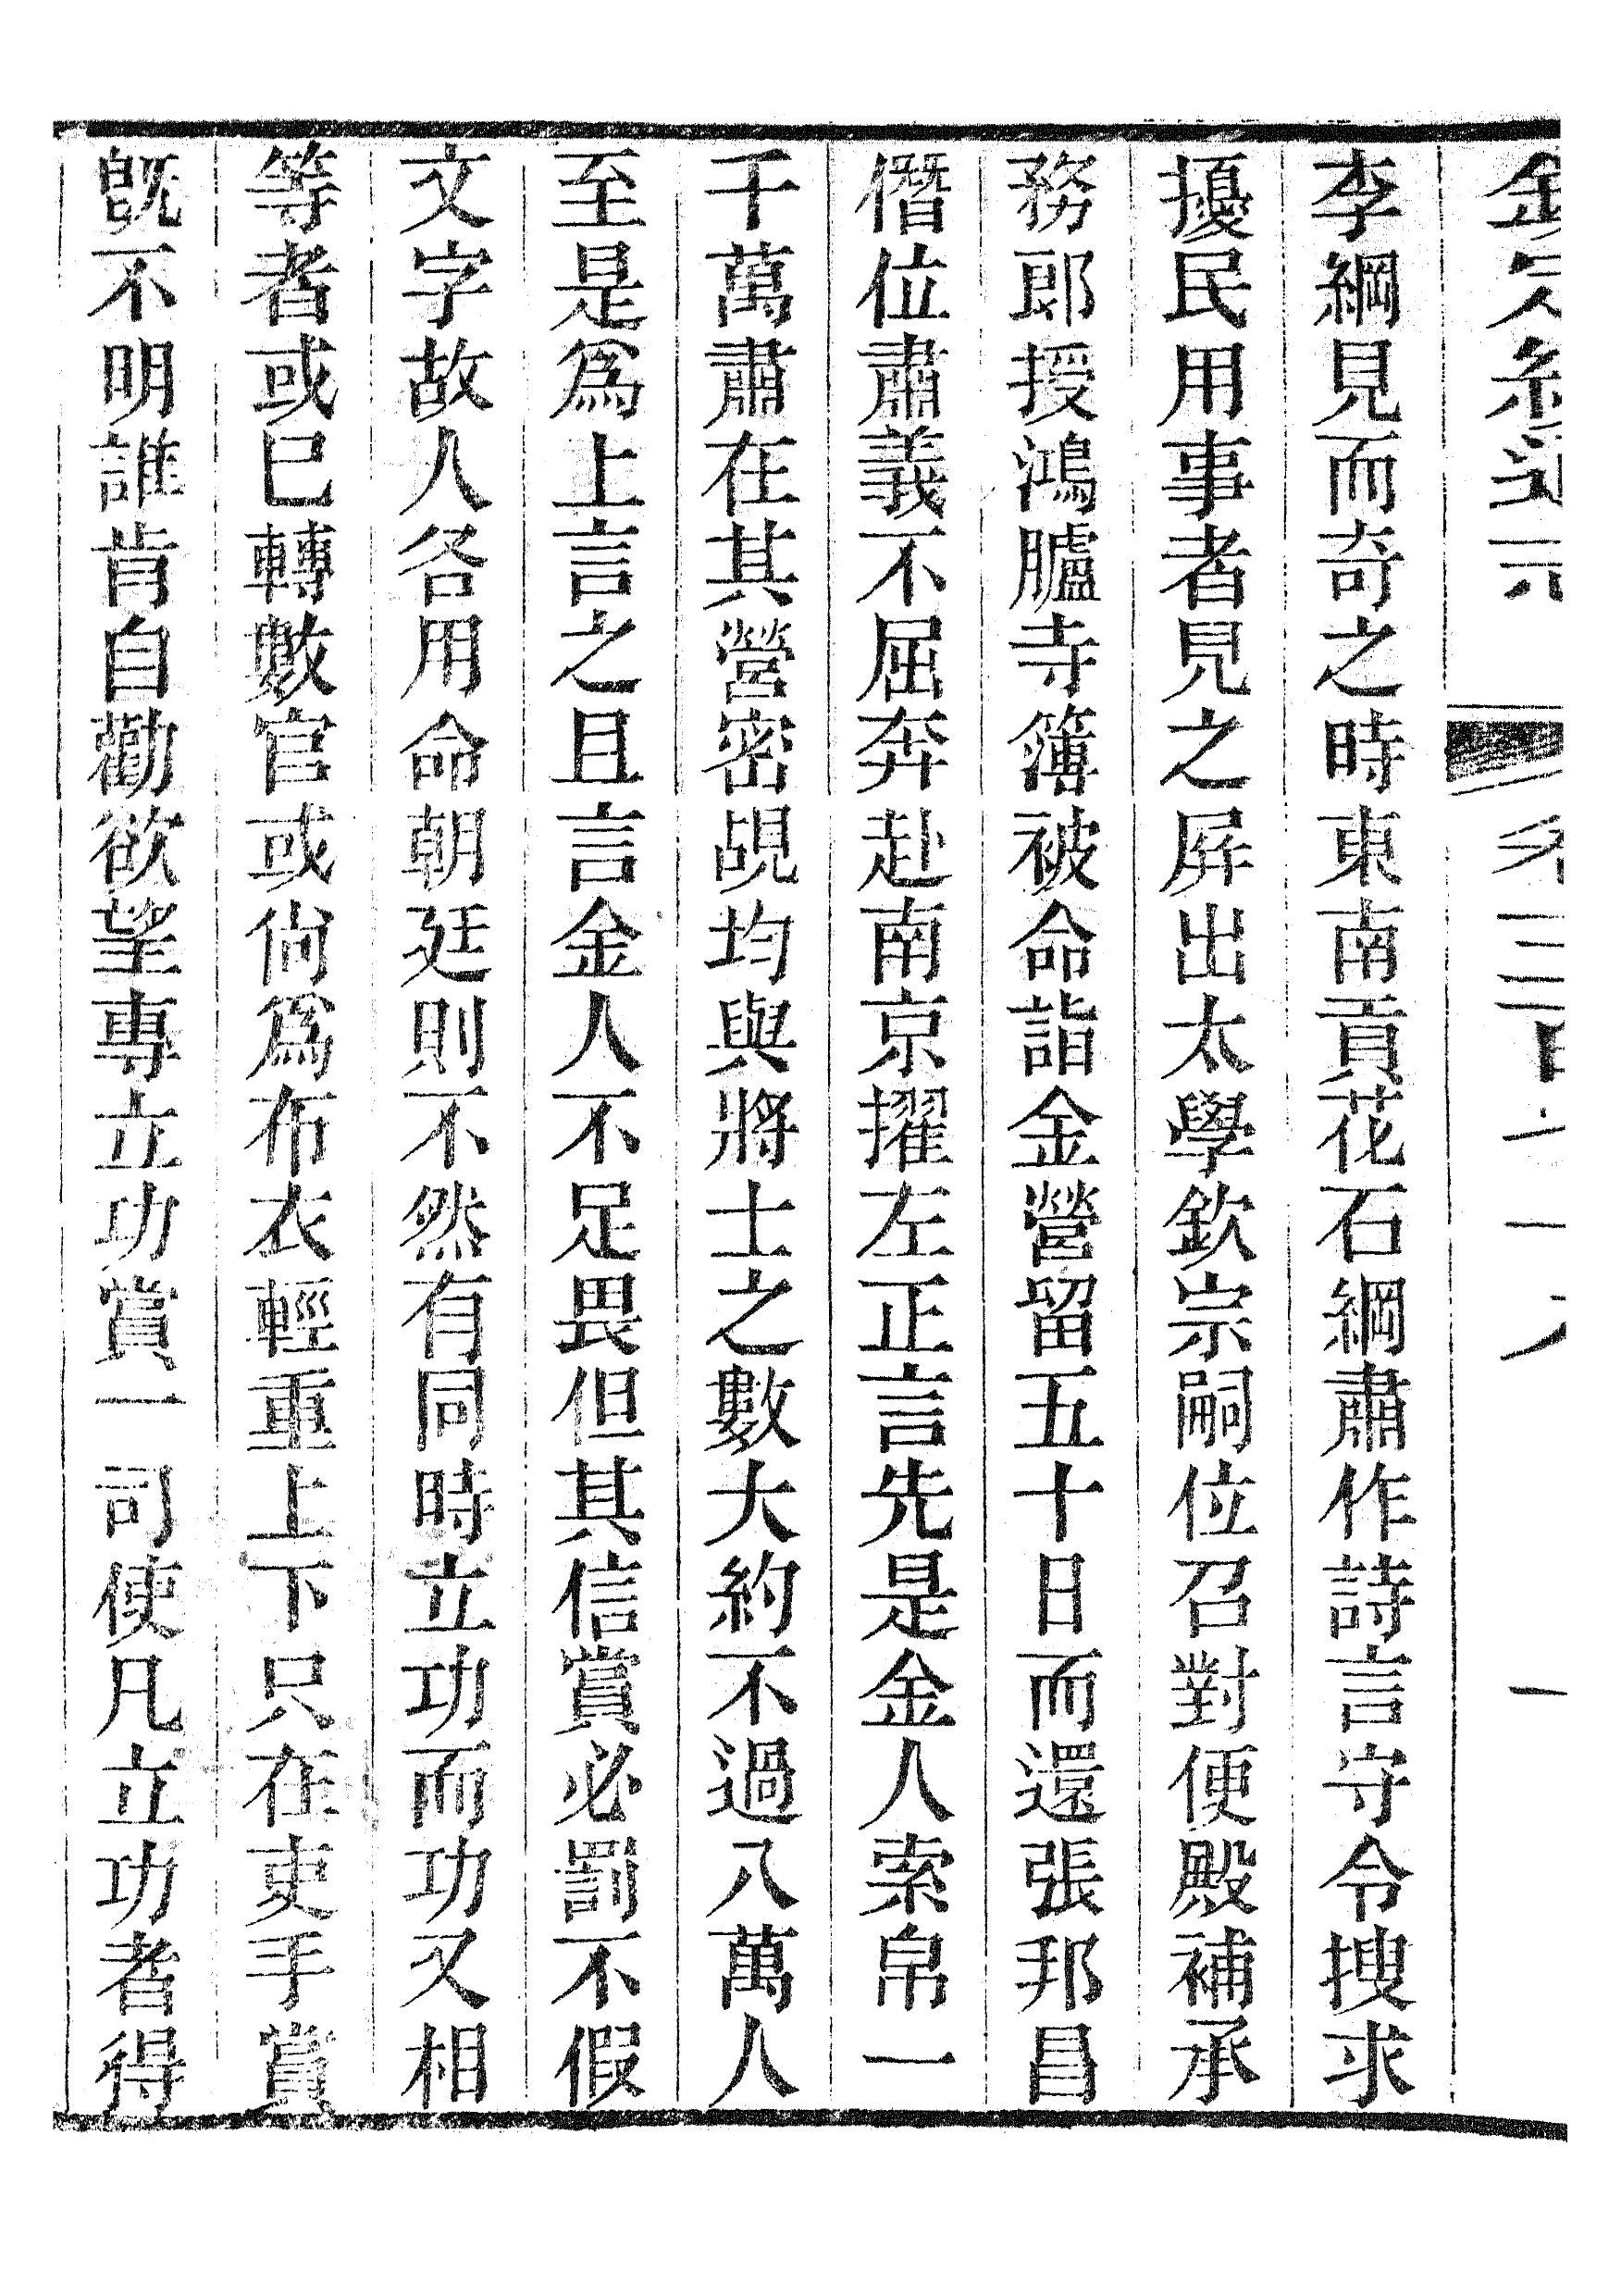 李綱見而奇之時東南貢花石綱肅作詩言守令搜求
擾民用事者見之屛出太學欽宗嗣位召對便殿補承
務郎授鴻臚寺簿被命詣金營留五十日而還張邦昌
僭位肅義不屈奔赴南京擢左正言先是金人索帛一
千萬肅在其營密覘均與將士之數大約不過八萬人
至是爲上言之且言金人不足畏但其信賞必罰不假
文字故人各用命朝廷則不然有同時立功而功又相
等者或巳轉數官或尙爲布衣輕重上下只在吏手賞
旣不明誰肯自勸欲望專立功賞一司使凡立功者得